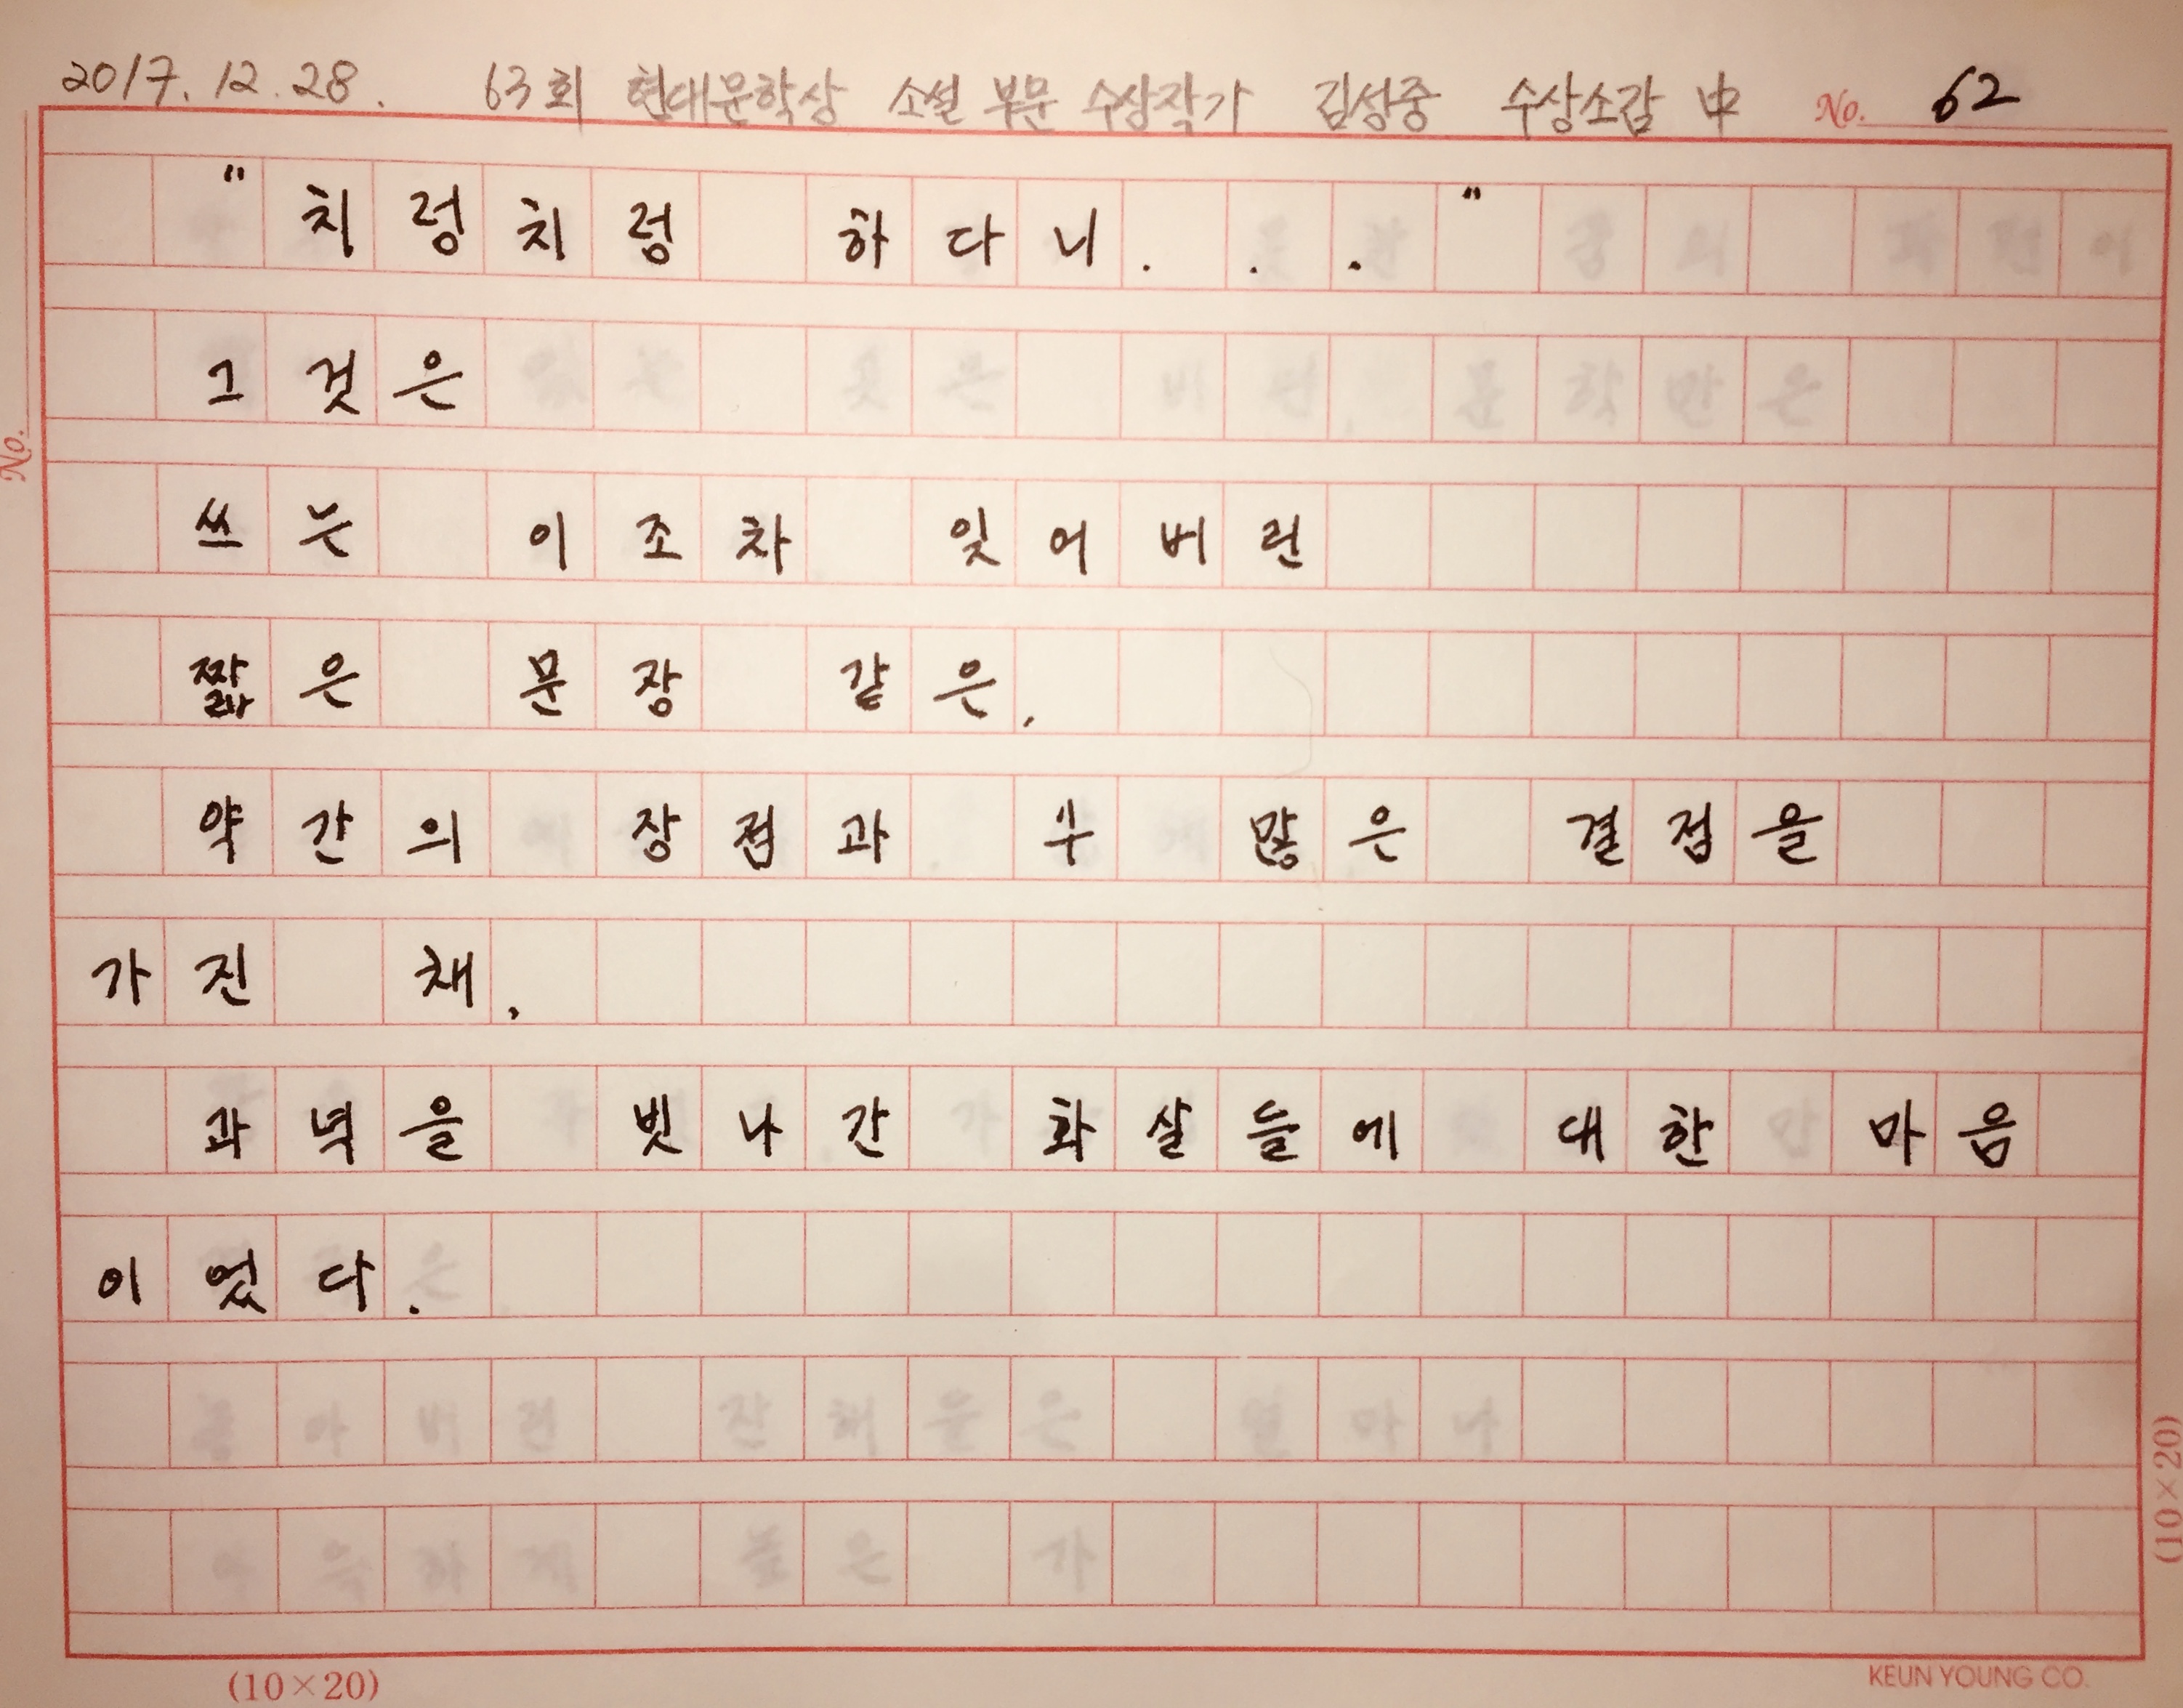 2017. 12. 28. 63회 현대문학상 소설 부문 수상작가 김성중 수상소감 中 No. 62
"치렁치렁 하다니..."
그것은
쓰는 이조차 잊어버린
짧은 문장 같은,
약간의 장점과 수 많은 결점을
가진 채,
과녁을 빗나간 화살들에 대한 마음
이었다.
No.
(10×20)
(10×20)
KEUN YOUNG CO.